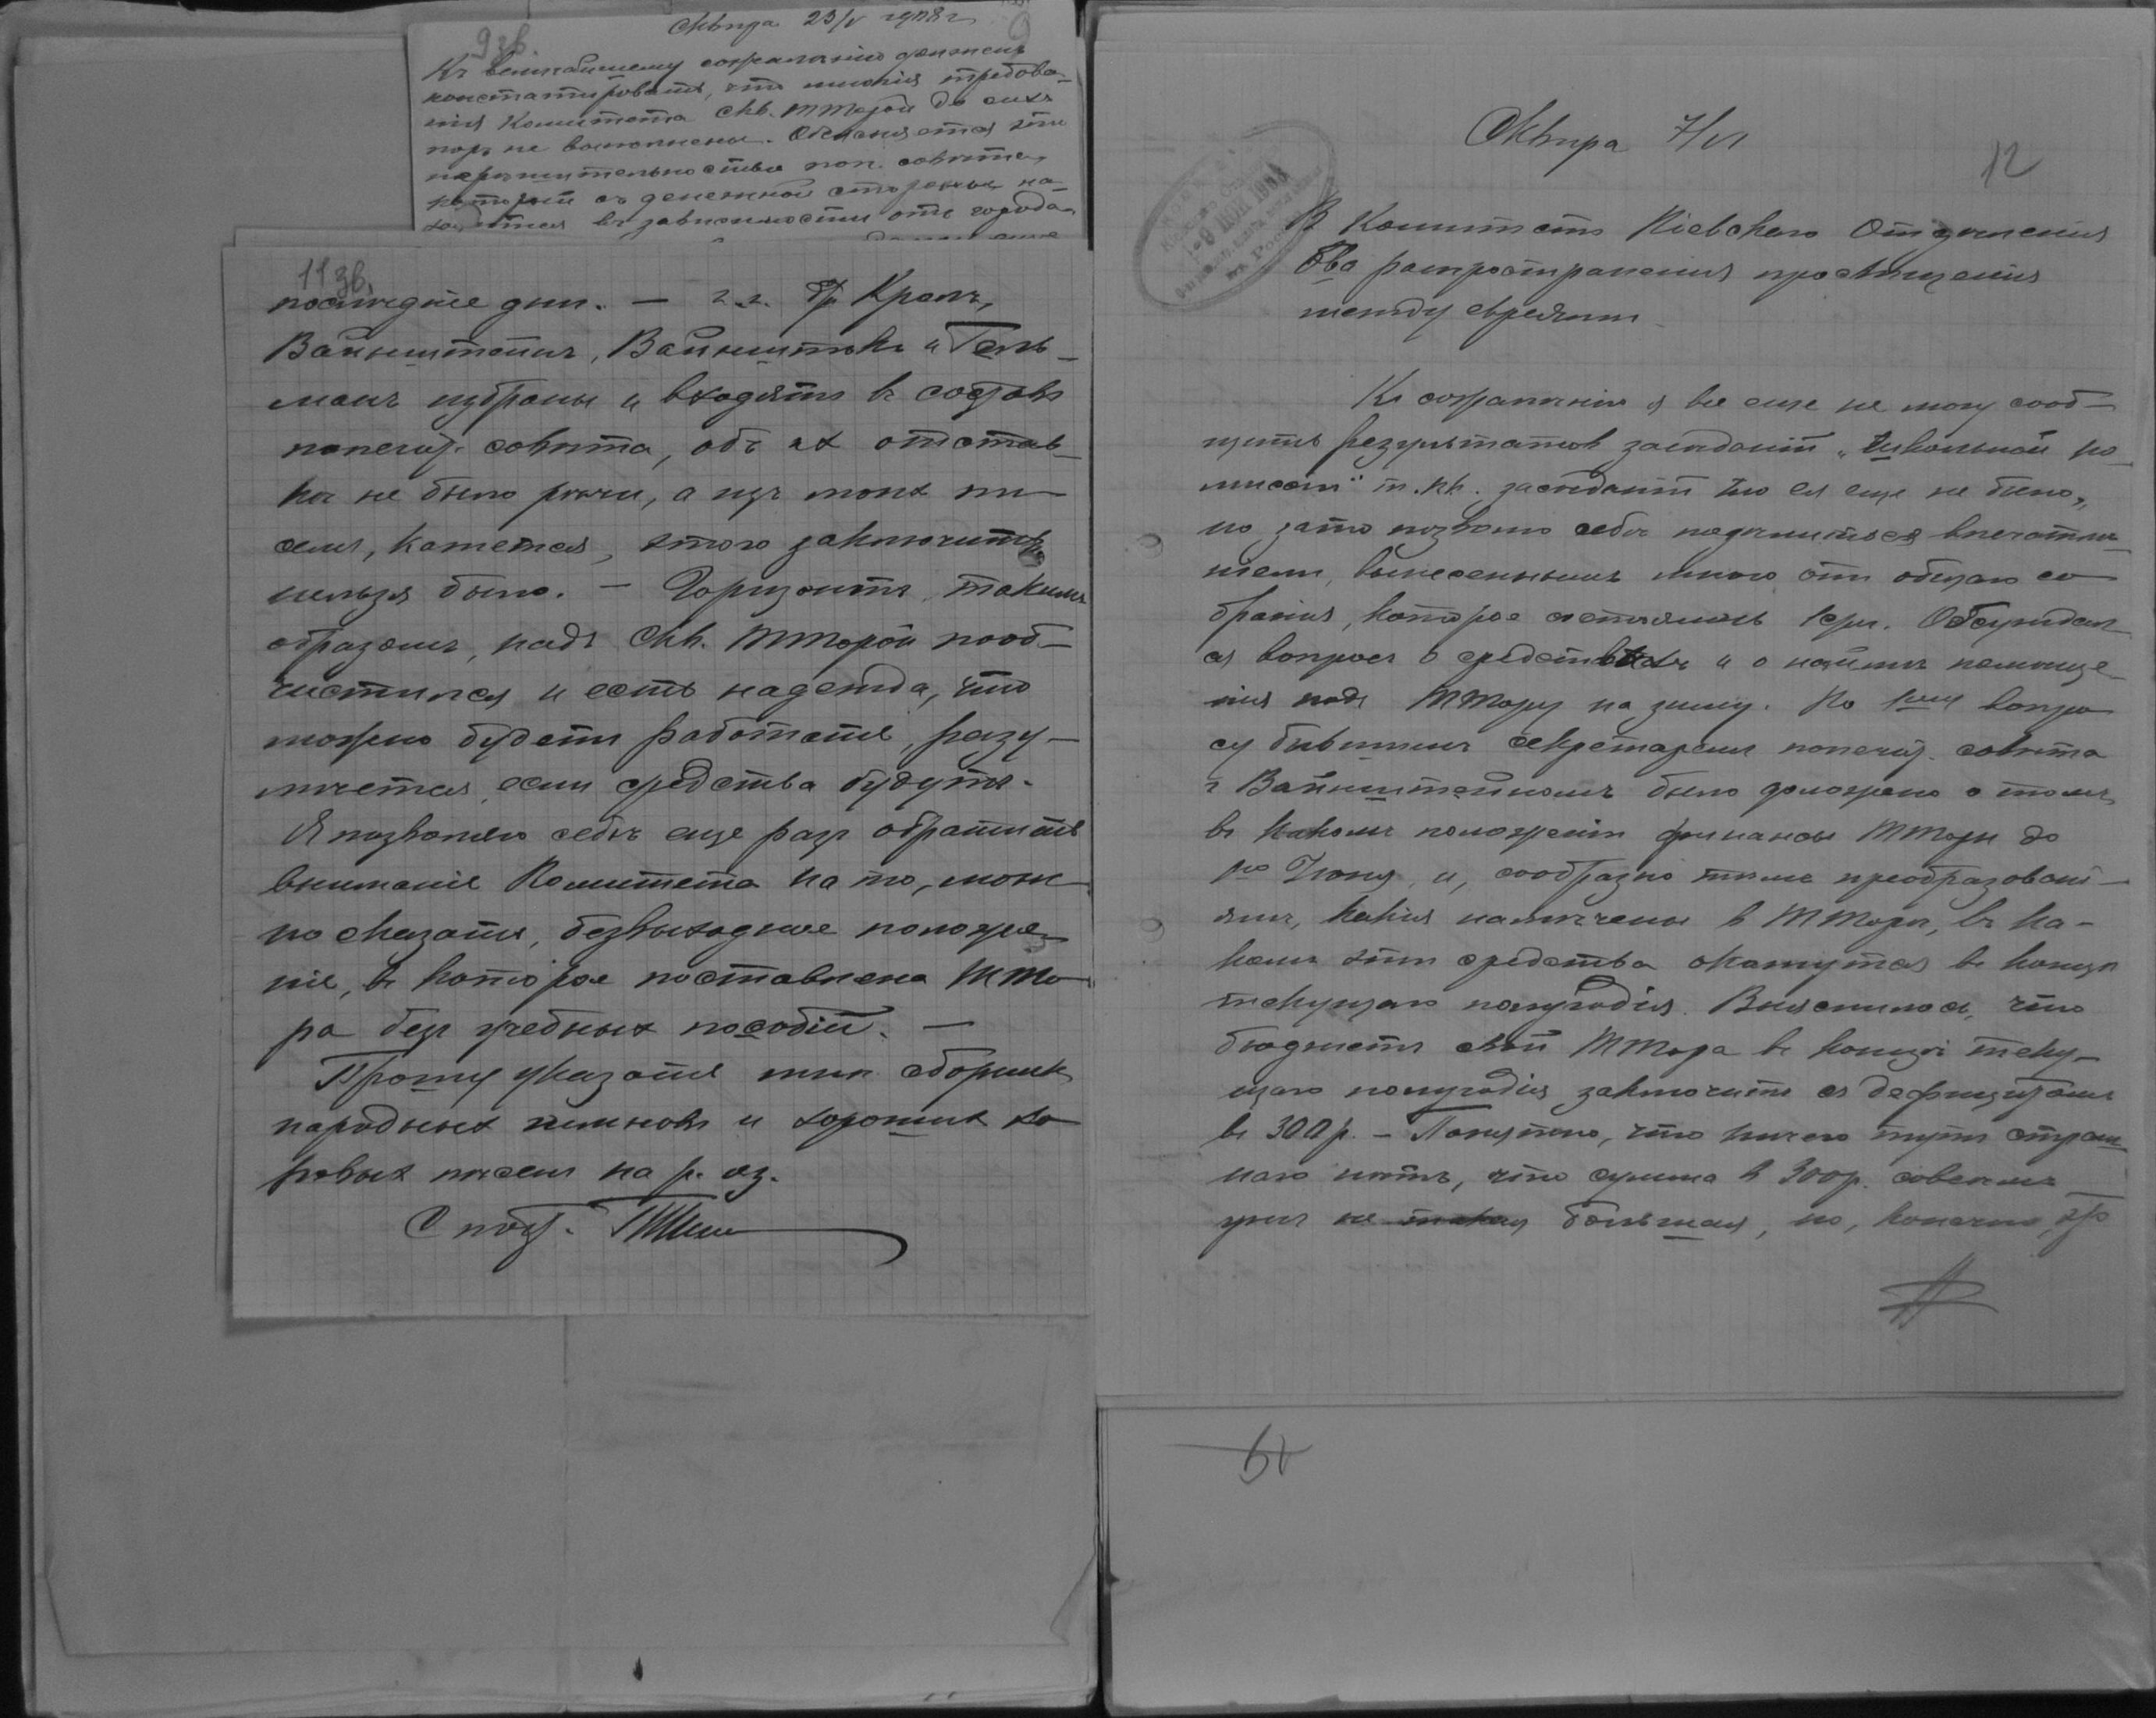 Сквира 23/V 1908 г.
9 зв.
9
Къ величайшему сожалѣнію долженъ
констатировать, что многія требова-
нія Комитета Скв. Т Торой до сихъ
поръ не выполнены. Объясняется это
нерѣшительностью поп. совѣта,
который съ денежной стороны на-
ходится въ зависимости отъ города
11 зв.
послѣдніе дни. — г.г. Др Кролъ,
Вайнштейнъ, Вайнштокъ и Гель-
манъ избраны и входятъ въ составъ
попечит. совѣта, объ их отстав-
кѣ не было рѣчи, а изъ моих пи-
семъ, кажется, этого заключить
нельзя было. — Горизонтъ, такимъ
образомъ, надъ Скв. Т Торой пооб-
чистился и есть надежда, что
можно будетъ работать, разу-
мѣется, если средства будутъ.
Я позволяю себѣ еще разъ обратить
вниманіе Комитета на то, мож-
но сказать, безвыходное положе-
ніе, въ которое поставлена Т То-
ра безъ учебных пособій. —
Прошу указать мнѣ сборникъ
народных гимновъ и хороших хо-
ровых пѣсенъ на р. яз.
С почт.
Сквира 7/VI
12
В Комитетъ Кіевскаго Отдѣленія
О-ва распространенія просвѣщенія
между евреями
Къ сожалѣнію я все еще не могу сооб-
щить результатов засѣданій „Школьной ко-
миссіи" т. кк. засѣданій ея еще не было,
но зато позволю себѣ подѣлиться впечатлѣ-
ніемъ, вынесеннымъ мною отъ общаго со-
бранія, которое состоялось Обсуждал-
ся вопросъ о средствахъ и о наймѣ помѣще-
нія подъ Т Тору на зиму. По 1му вопро-
су бывшимъ секретаремъ попечит. совѣта
г Вайнштейномъ было доложено о томъ,
въ какомъ положеніи финансы Т Торы до
1го Іюня, и, сообразно тѣмъ преобразовані-
ямъ, какія намѣчены в Т Торѣ, въ ка-
комъ эти средства окажутся въ концѣ
текущаго полугодія. Выяснилось, что
бюджетъ Скв Т Тора въ концѣ теку-
щаго полугодія заключитъ съ дефицитомъ
въ 300 р. — Понятно, что ничего тутъ страш-
наго нѣтъ, что сумма в 300 р. совсѣмъ
ужъ не такая большая, но, конечно, это